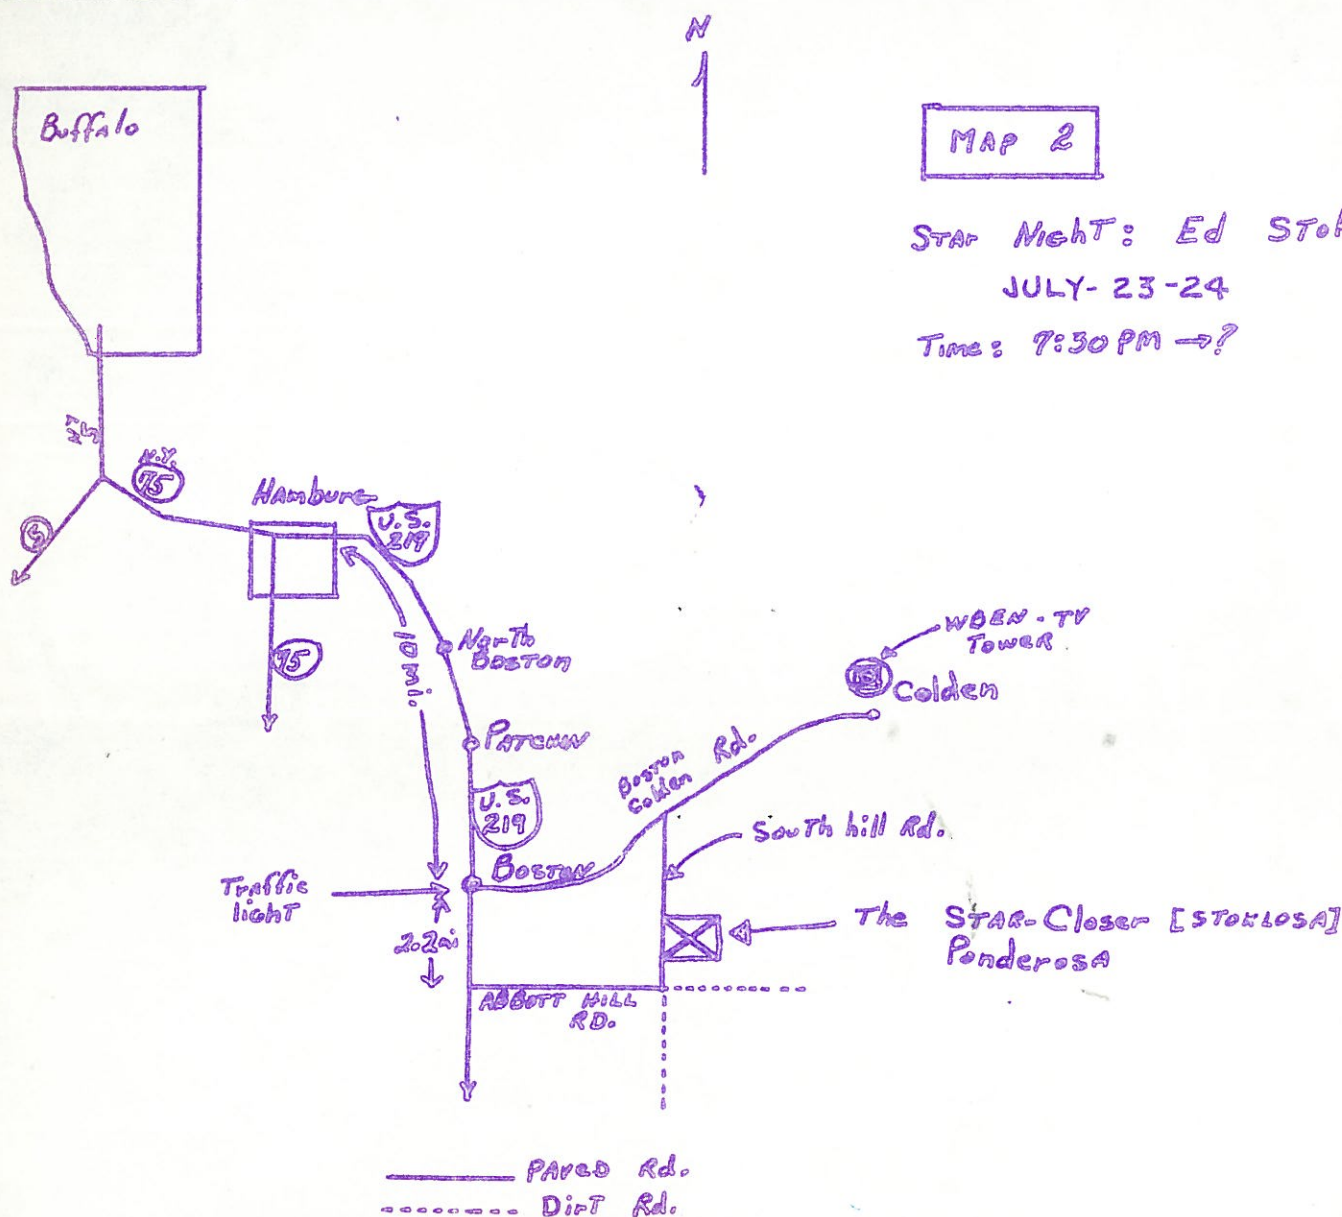 N
Buffalo
MAP 2
STAr NighT: Ed
JULY-23-24
Time: 9:30 PM →?
N.Y.
75
5
Hamburg
U.S.
219
75
10 mi.
North
BOSTON
PATCHIN
U.S.
219
WBEN-TV
TOWER
Colden
BOSTON
Colden Rd.
South hill Rd.
BOSTON
Traffic
lighT
2.2mi
The STAR-Closer [STOKLOSA]
PonderosA
ABBOTT HILL
RD.
PAVED Rd.
DirT Rd.